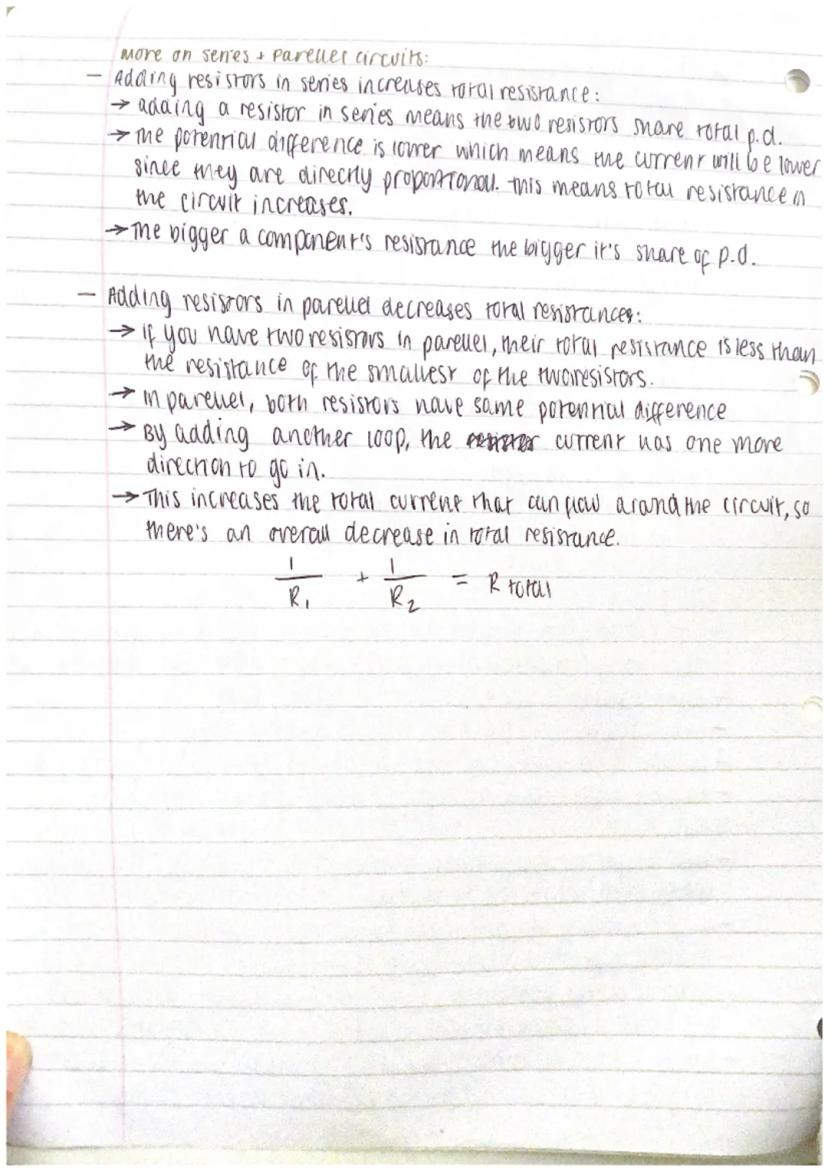 more on series + pareller circuits:
– Adding resistors in series increases total resistance:
→ adding a resistor in series means the two resistors share total p.d.
→ The potential difference is lower which means the current will be lower
since they are directly proportional. This means total resistance in
the circuit increases.
→ The bigger a component's resistance the bigger it's share of p.d.
– Adding resistors in parellel decreases total resistances:
→ If you have two resistors in pareller, their total resistance is less than
the resistance of the smallest of the two resistors.
→ In pareller, both resistors have same potential difference
→ By adding another loop, the current has one more
direction to go in.
→ This increases the total current that can flow around the circuit, so
there's an overall decrease in total resistance.
1/R₁ + 1/R₂ = R total